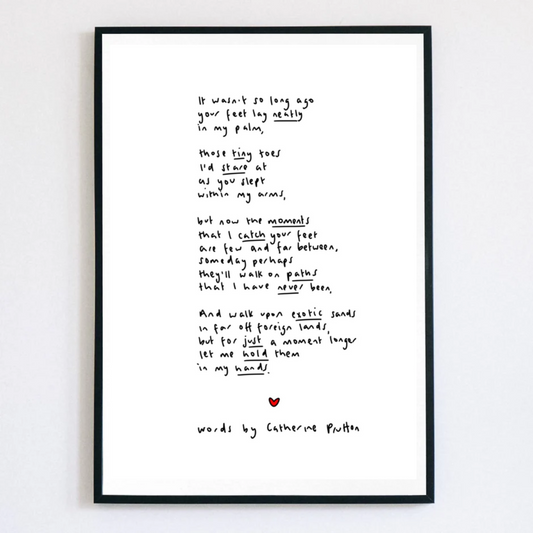 It wasn't so long ago
your feet lay neatly
in my palm,
those tiny toes
I'd stare at
as you slept
within my arms,
but now the moments
that I catch your feet
are few and far between,
someday perhaps
they'll walk on paths
that I have never been.
And walk upon exotic sands
in far off foreign lands,
but for just a moment longer
let me hold them
in my hands.
words by Catherine Prutton